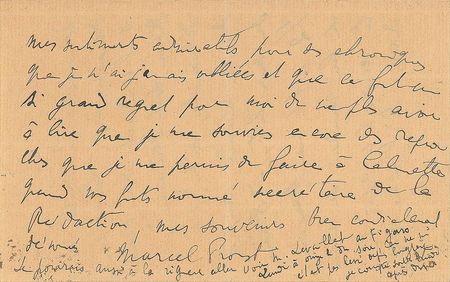 mes sentiments admiratifs pour vos chroniques
que je n'ai jamais oubliées et que ce fut un
si grand regret pour moi de ne plus avoir
à lire que je me souviens encore des repro
ches que je me permis de faire à Calmette
quand vous fûtes nommé secrétaire de la
Rédaction, mes souvenirs bien cordialement
dévoués
Marcel Proust
Je pourrais aussi à la rigueur aller voir M. Levaillant au Figaro
Lundi à onze h du soir